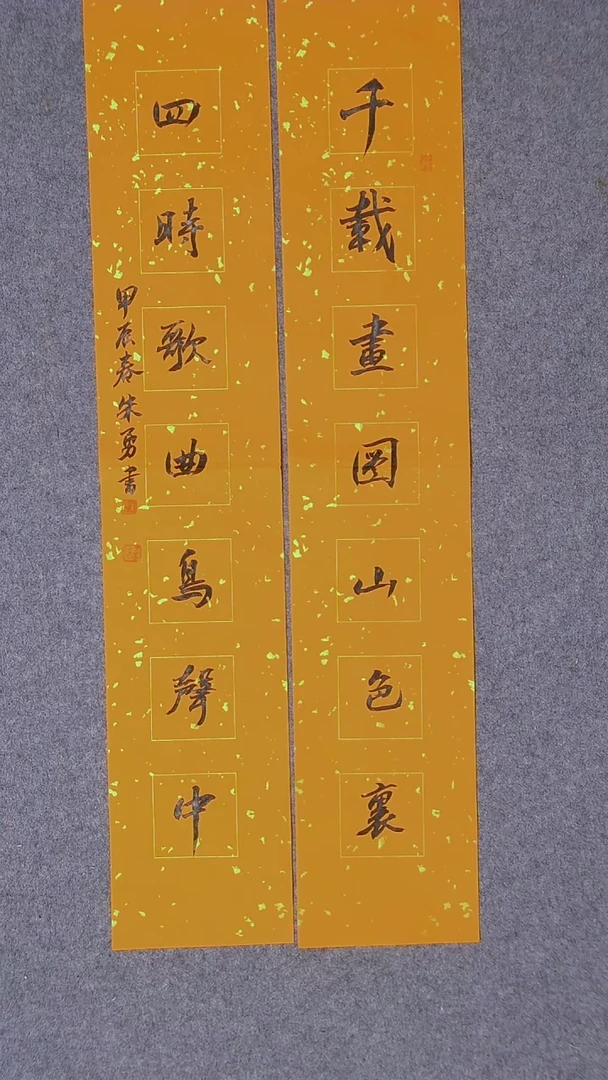 千載畫图山色裏
四時歌曲鳥聲中
甲辰春朱勇書